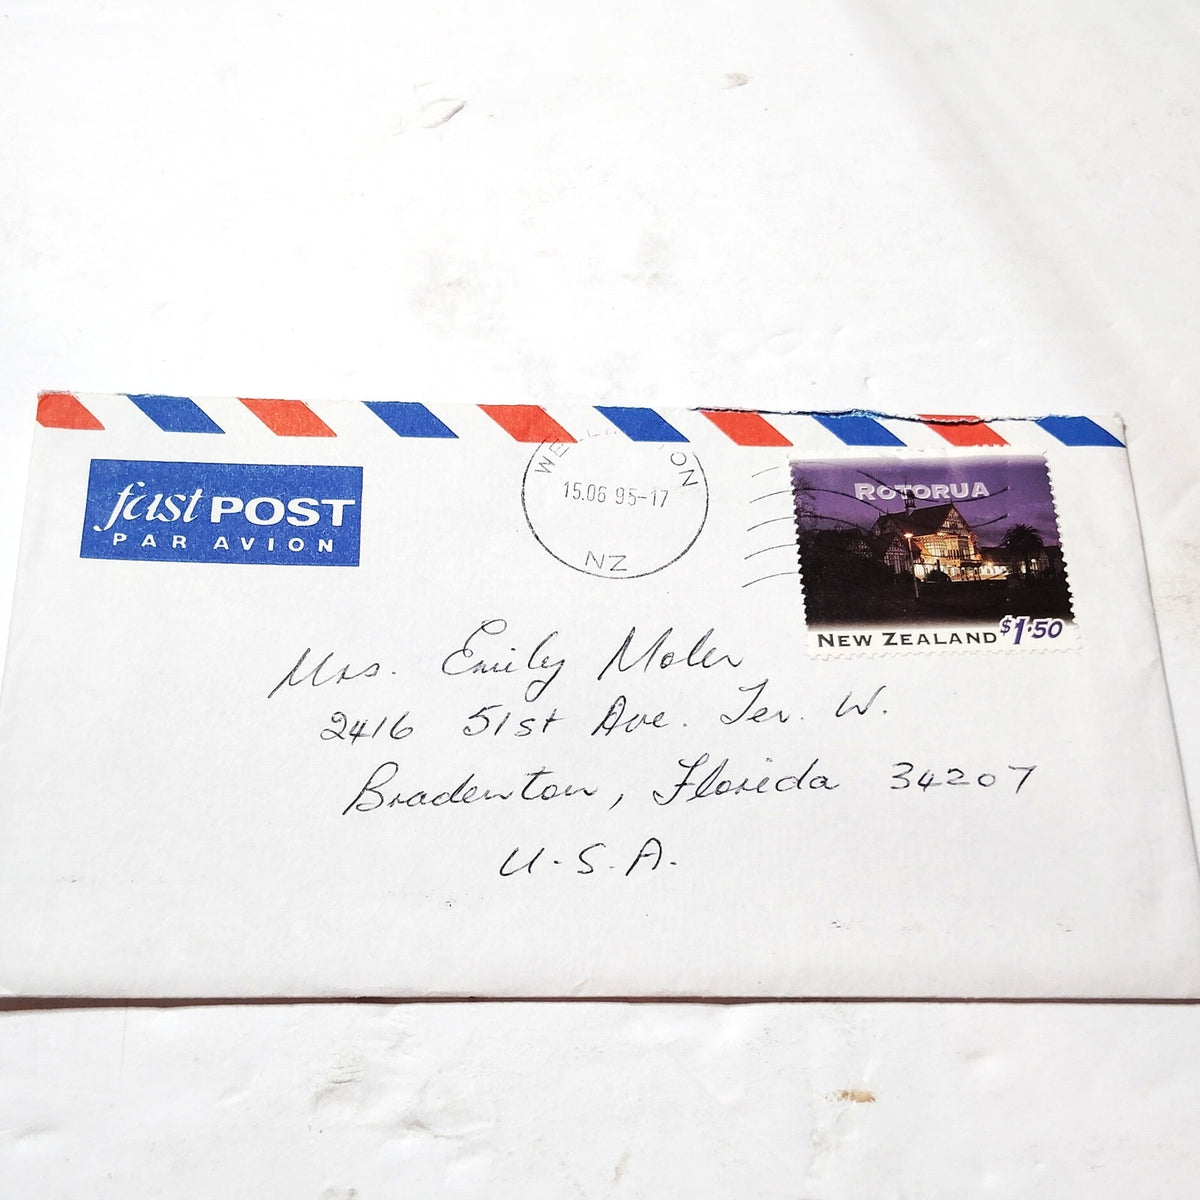 fast POST
PAR AVION
WELLINGTON
15.06 95-17
NZ
ROTORUA
NEW ZEALAND $1.50
Mrs. Emily Moler
2416 51st Ave. Ter. W.
Bradenton, Florida 34207
U.S.A.